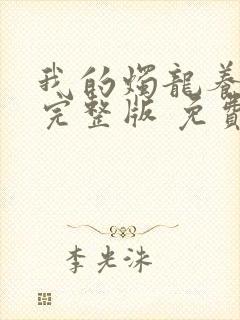 我的燭龍養
完整版 免費
李光洙